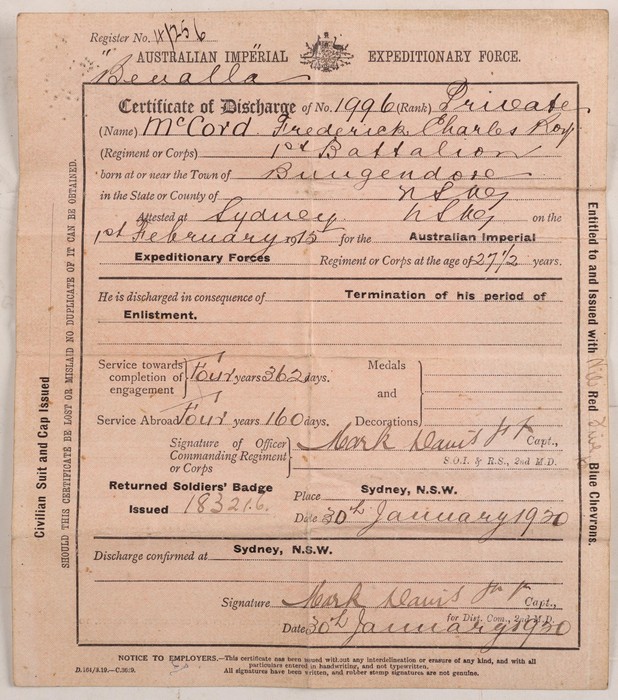 Register No. 4/256
AUSTRALIAN IMPERIAL EXPEDITIONARY FORCE.
"Benalla"
Certificate of Discharge of No. 1996 (Rank) Private
(Name) McCord Frederick Charles Roy
(Regiment or Corps) 1st Battalion
born at or near the Town of Bungendore
in the State or County of NSW
Attested at Sydney NSW on the
1st February 1915 for the Australian Imperial
Expeditionary Forces Regiment or Corps at the age of 27 1/2 years.
He is discharged in consequence of Termination of his period of
Enlistment.
Service towards completion of engagement } Four years 362 days.
Medals and Decorations }
Service Abroad Four years 160 days.
Signature of Officer Commanding Regiment or Corps } Mark Davis Capt.,
S.O.I. & R.S., 2nd M.D.
Returned Soldiers' Badge
Issued 183216.
Place Sydney, N.S.W.
Date 30th January 1920
Discharge confirmed at Sydney, N.S.W.
Signature Mark Davis Capt.,
for Dist. Com., 2nd M.D.
Date 30th January 1920
NOTICE TO EMPLOYERS.—This certificate has been issued without any interdelineation or erasure of any kind, and with all
particulars entered in handwriting, and not typewritten.
All signatures have been written, and rubber stamp signatures are not genuine.
D.164/3.19.—C.3639.
Civilian Suit and Cap Issued
SHOULD THIS CERTIFICATE BE LOST OR MISLAID NO DUPLICATE OF IT CAN BE OBTAINED.
Entitled to and Issued with Red Blue Chevrons.